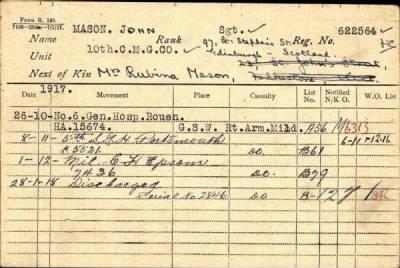 FORM R. 149.
Name MASON. JOHN Rank Sgt. Reg. No. 622564
Unit 10th.C.M.G.CO. 97, St. Stephen's St.
Edinburgh - Scotland.
Next of Kin Mrs Rubina Mason,
Date 1917. Movement Casualty List No. Notified N/K O. W.O. List
26-10-No.6.Gen.Hosp.Rouen.
HA.15674. G.S.W. Rt.Arm.Mild. A56 M6313
8-11- 5th S. G H Portsmouth 6-11-12-16
C5521. DO. B61
1-12- Mil. C H Epsom
7436 DO. B79
28-1-18 Discharged
Serial No 2846 DO. B-127